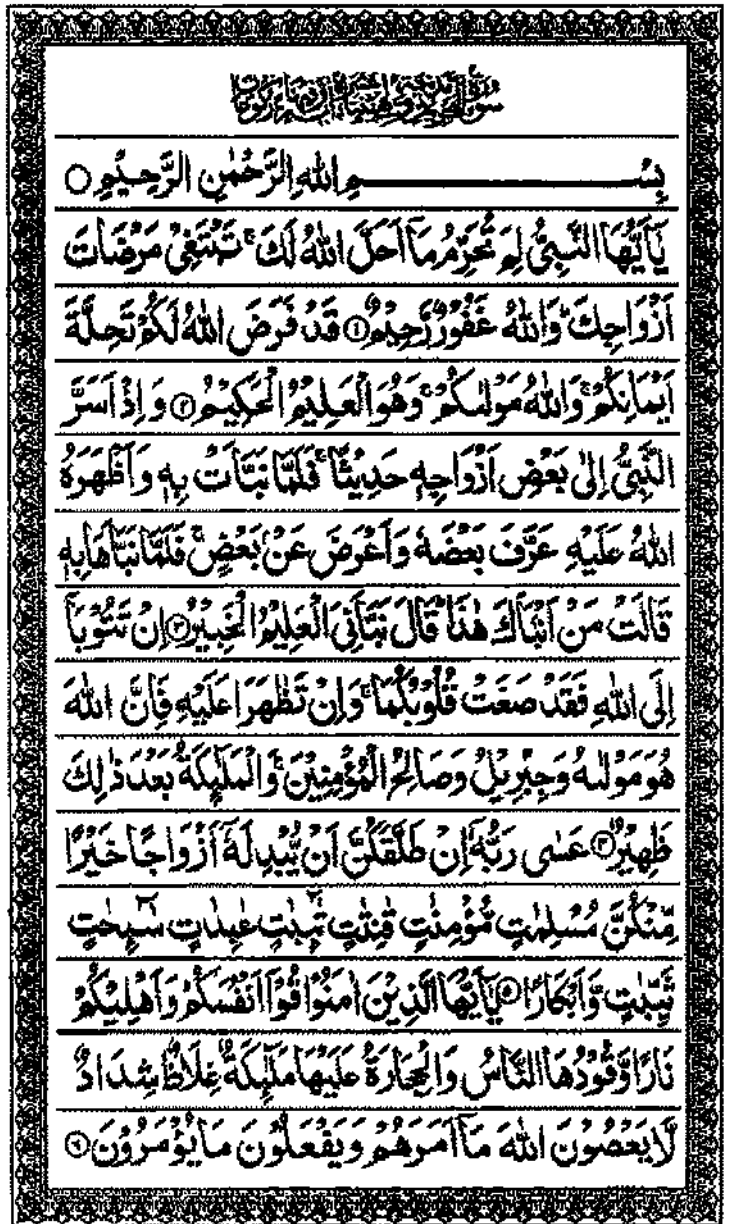 بِسْمِ اللهِ الرَّحْمٰنِ الرَّحِيْمِ ○
يٰۤاَيُّهَا النَّبِيُّ لِمَ تُحَرِّمُ مَاۤ اَحَلَّ اللهُ لَكَ ۚ تَبْتَغِيْ مَرْضَاتَ
اَزْوَاجِكَ ؕ وَاللهُ غَفُوْرٌ رَّحِيْمٌ ۝۱ قَدْ فَرَضَ اللهُ لَكُمْ تَحِلَّةَ
اَيْمَانِكُمْ ۚ وَاللهُ مَوْلٰىكُمْ ۚ وَهُوَ الْعَلِيْمُ الْحَكِيْمُ ۝۲ وَ اِذْ اَسَرَّ
النَّبِيُّ اِلٰى بَعْضِ اَزْوَاجِهٖ حَدِيْثًا ۚ فَلَمَّا نَبَّاَتْ بِهٖ وَاَظْهَرَهُ
اللهُ عَلَيْهِ عَرَّفَ بَعْضَهٗ وَاَعْرَضَ عَنْۢ بَعْضٍ ۚ فَلَمَّا نَبَّاَهَا بِهٖ
قَالَتْ مَنْ اَنْۢبَاَكَ هٰذَا ؕ قَالَ نَبَّاَنِيَ الْعَلِيْمُ الْخَبِيْرُ ۝۳ اِنْ تَتُوْبَاۤ
اِلَى اللهِ فَقَدْ صَغَتْ قُلُوْبُكُمَا ۚ وَاِنْ تَظٰهَرَا عَلَيْهِ فَاِنَّ اللهَ
هُوَ مَوْلٰىهُ وَجِبْرِيْلُ وَصَالِحُ الْمُؤْمِنِيْنَ ۚ وَالْمَلٰٓئِكَةُ بَعْدَ ذٰلِكَ
ظَهِيْرٌ ۝۴ عَسٰى رَبُّهٗۤ اِنْ طَلَّقَكُنَّ اَنْ يُّبْدِلَهٗۤ اَزْوَاجًا خَيْرًا
مِّنْكُنَّ مُسْلِمٰتٍ مُّؤْمِنٰتٍ قٰنِتٰتٍ تٰٓئِبٰتٍ عٰبِدٰتٍ سٰٓئِحٰتٍ
ثَيِّبٰتٍ وَّاَبْكَارًا ۝۵ يٰۤاَيُّهَا الَّذِيْنَ اٰمَنُوْا قُوْۤا اَنْفُسَكُمْ وَاَهْلِيْكُمْ
نَارًا وَّقُوْدُهَا النَّاسُ وَالْحِجَارَةُ عَلَيْهَا مَلٰٓئِكَةٌ غِلَاظٌ شِدَادٌ
لَّا يَعْصُوْنَ اللهَ مَاۤ اَمَرَهُمْ وَيَفْعَلُوْنَ مَا يُؤْمَرُوْنَ ۝۶